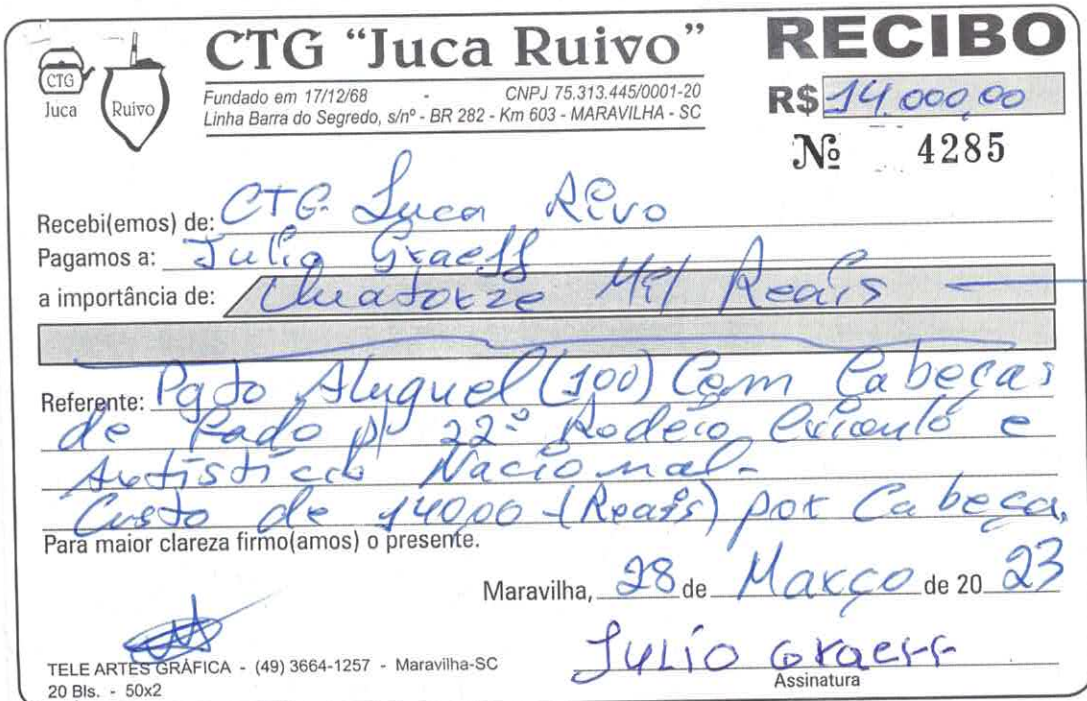 CTG
Juca
Ruivo
CTG "Juca Ruivo"
Fundado em 17/12/68 - CNPJ 75.313.445/0001-20
Linha Barra do Segredo, s/nº - BR 282 - Km 603 - MARAVILHA - SC
RECIBO
R$ 14.000,00
Nº 4285
Recebi(emos) de: CTG Juca Rivo
Pagamos a: Julio Graeff
a importância de: Quatorze Mil Reais
Referente: Pgto Aluguel (100) Cem Cabeças
de Gado p/ 22º Rodeio e
Artístico Nacional-
Custo de 140,00 (Reais) por Cabeça,
Para maior clareza firmo(amos) o presente.
Maravilha, 28 de Março de 20 23
Julio Graeff
Assinatura
TELE ARTES GRÁFICA - (49) 3664-1257 - Maravilha-SC
20 Bls. - 50x2